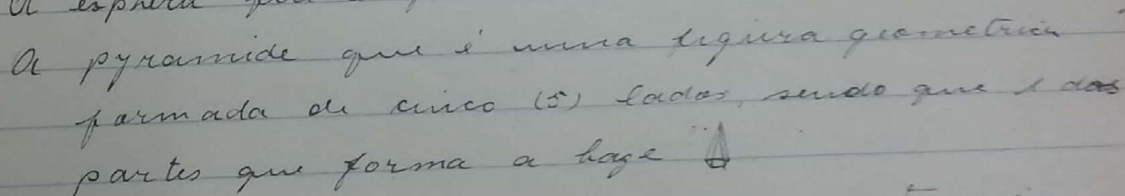 A esphera que
A pyramide que é uma figura geometrica
formada de cinco (5) lados, sendo que 1 das
partes que forma a base